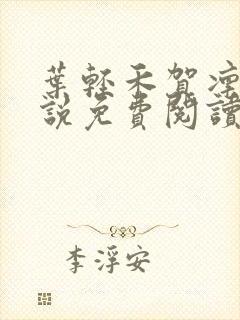 葉輕禾賀凜
說免費閱讀
李浮安